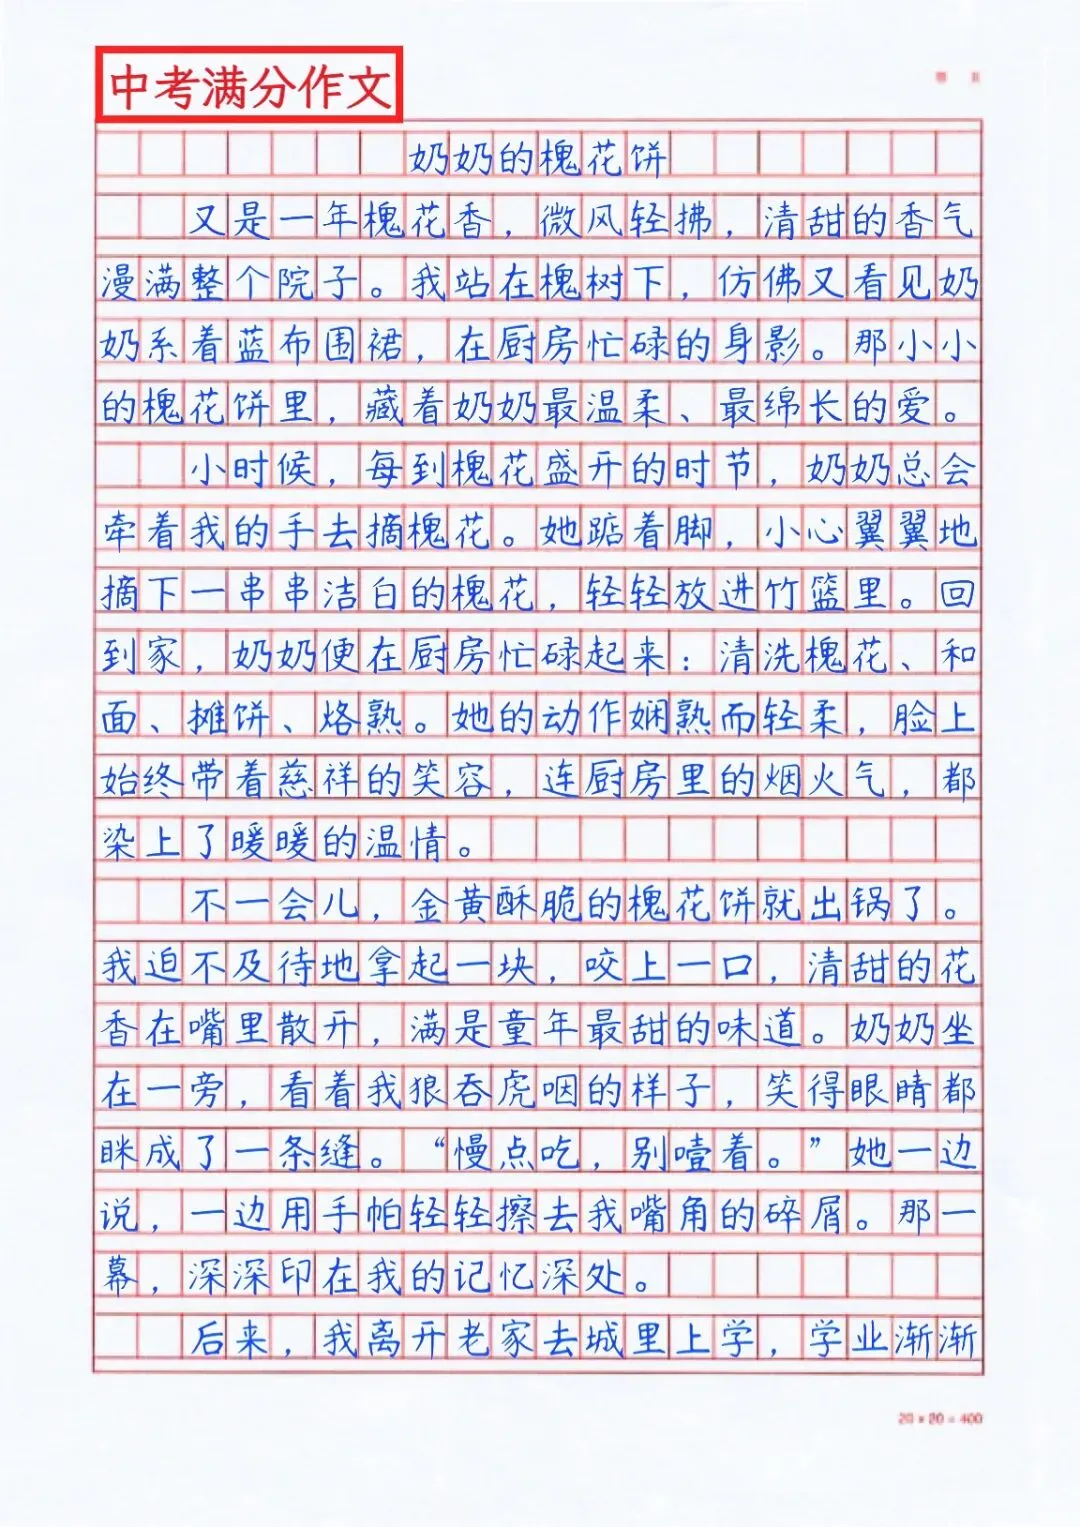 中考满分作文
奶奶的槐花饼
又是一年槐花香，微风轻拂，清甜的香气
漫满整个院子。我站在槐树下，仿佛又看见奶
奶系着蓝布围裙，在厨房忙碌的身影。那小小
的槐花饼里，藏着奶奶最温柔、最绵长的爱。
小时候，每到槐花盛开的时节，奶奶总会
牵着我的手去摘槐花。她踮着脚，小心翼翼地
摘下一串串洁白的槐花，轻轻放进竹篮里。回
到家，奶奶便在厨房忙碌起来：清洗槐花、和
面、摊饼、烙熟。她的动作娴熟而轻柔，脸上
始终带着慈祥的笑容，连厨房里的烟火气，都
染上了暖暖的温情。
不一会儿，金黄酥脆的槐花饼就出锅了。
我迫不及待地拿起一块，咬上一口，清甜的花
香在嘴里散开，满是童年最甜的味道。奶奶坐
在一旁，看着我狼吞虎咽的样子，笑得眼睛都
眯成了一条缝。“慢点吃，别噎着。”她一边
说，一边用手帕轻轻擦去我嘴角的碎屑。那一
幕，深深印在我的记忆深处。
后来，我离开老家去城里上学，学业渐渐
20×20=400